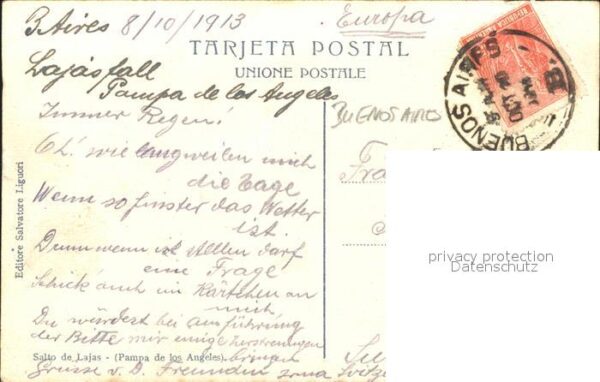 B Aires 8/10/1913
Europa
TARJETA POSTAL
UNIONE POSTALE
Lajasfall
Pampa de los Angeles
Immer Regen!
BUENOS AIRES
Oh! wie langweilen mich
die Tage
Wenn so finster das Wetter
ist.
Dennwenn ist stellen darf
eine Frage
Schick auch ein Kärtchen an
mich,
Du würdest bei ausführung
der Bitte mir einige zerstreuungen
bringen
Grüsse v. D. Freundin Erna
Salto de Lajas - (Pampa de los Angeles)
Editore Salvatore Liguori
BUENOS AIRES
B
REPUBLICA ARGENTINA
Fra
privacy protection
Datenschutz